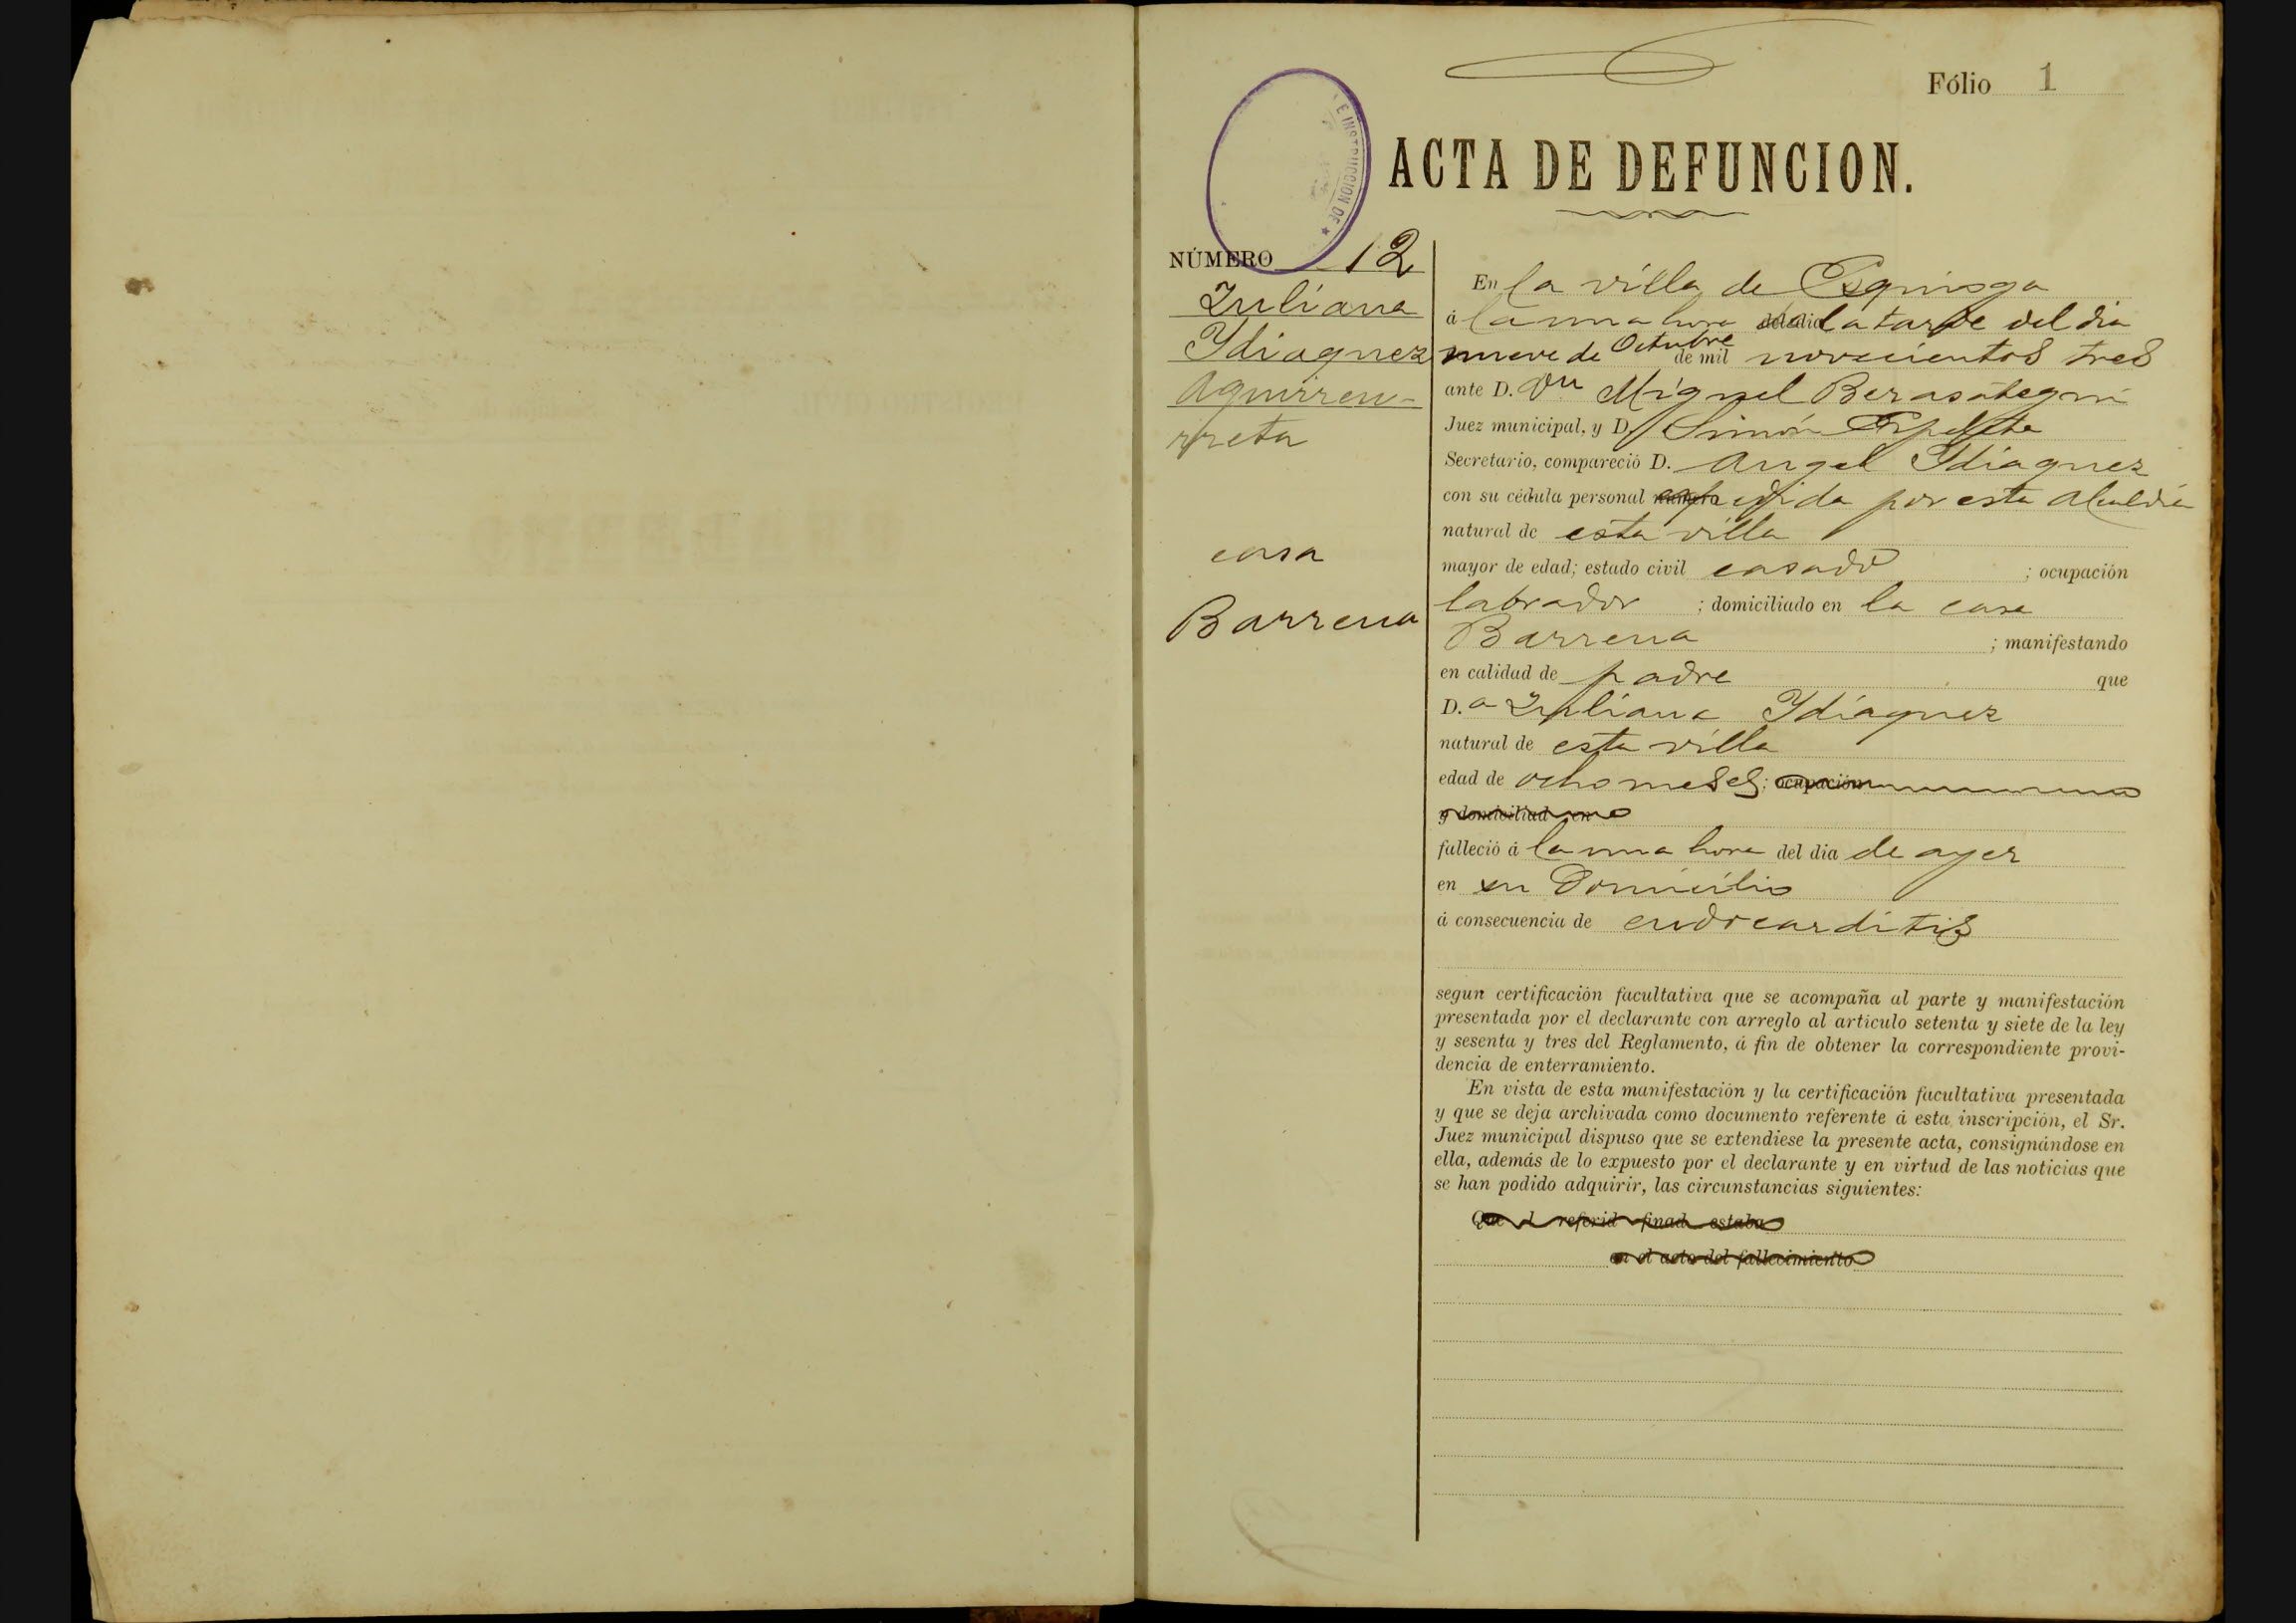 Fólio 1
E INSTRUCCION DE ★
ACTA DE DEFUNCION.
NÚMERO 12
Juliana
Ydiaquez
Aguirreu-
rreta
casa
Barrena
En la villa de Ezquioga
á la una hora del dia la tarde del dia
nueve de Octubre de mil novecientos tres
ante D. Dn Miguel Berasategui
Juez municipal, y D. Simón
Secretario, compareció D. Angel Ydiaquez
con su cédula personal número expedida por esta Alcaldía
natural de esta villa
mayor de edad; estado civil casado ; ocupación
labrador ; domiciliado en la casa
Barrena ; manifestando
en calidad de padre que
D.a Juliana Ydiaquez
natural de esta villa
edad de ocho meses; ocupación
y domiciliad en
falleció á la una hora del dia de ayer
en su Domicilio
á consecuencia de endocarditis
segun certificación facultativa que se acompaña al parte y manifestación
presentada por el declarante con arreglo al artículo setenta y siete de la ley
y sesenta y tres del Reglamento, á fin de obtener la correspondiente provi-
dencia de enterramiento.
En vista de esta manifestación y la certificación facultativa presentada
y que se deja archivada como documento referente á esta inscripción, el Sr.
Juez municipal dispuso que se extendiese la presente acta, consignándose en
ella, además de lo expuesto por el declarante y en virtud de las noticias que
se han podido adquirir, las circunstancias siguientes:
Que l referid finad estaba
en el acto del fallecimiento